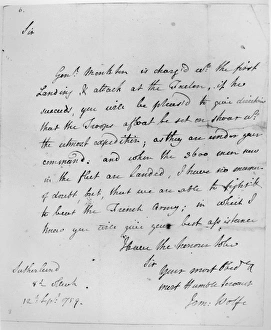 6.
Sir
Genl. Monckton is charg'd wth. the first
Landing & attack at the Foulon, if he
succeeds, you will be pleased to give directions
that the Troops afloat be set on shoar wth
the utmost expedition; as they are under your
command. and when the 3600 men now
in the fleet are Landed, I have no manner
of doubt, but, that we are able to fight &
to beat the French Army; in which I
know you will give your best assistance
I have the honour to be
Sir
Your most Obedt. &
most Humble Servant
Jam: Wolfe
Sutherland
8 o Clock
12th. Sepr. 1759.